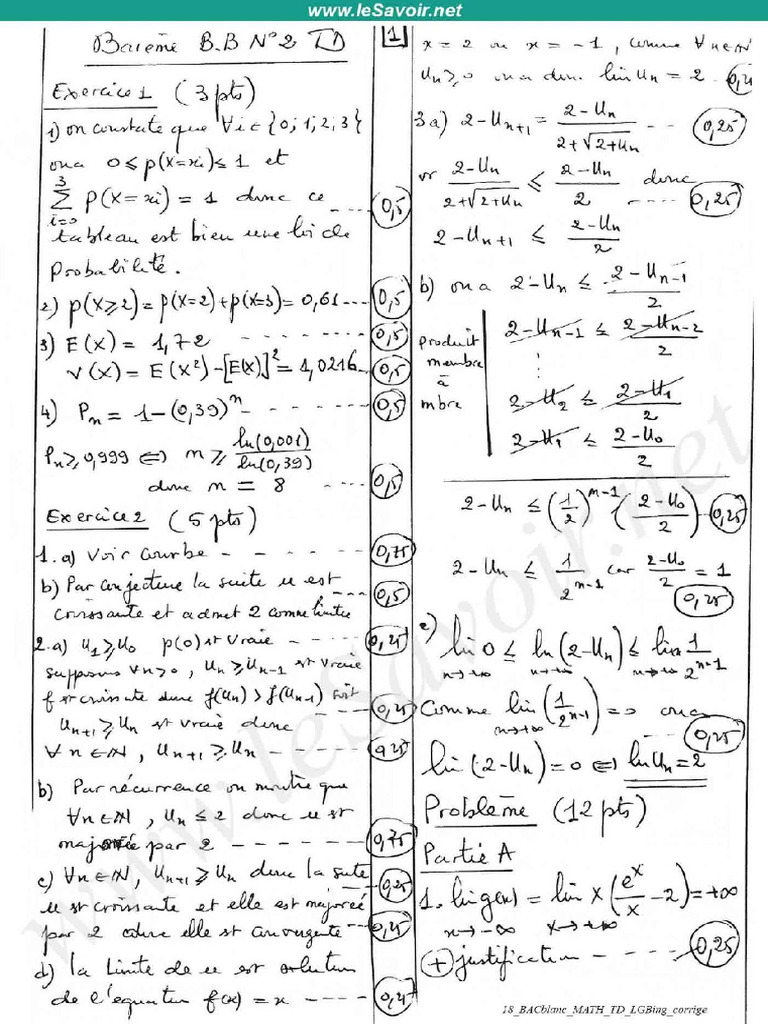 www.leSavoir.net
Barème B.B N°2 TD
Exercice 1 (3 pts)
1) on constate que ∀i ∈ {0; 1; 2; 3}
on a 0 ≤ p(X=xi) ≤ 1 et
3
∑ p(X=xi) = 1 donc ce ---- 0,5
i=0
tableau est bien une loi de
probabilité.
2) p(X≥2) = p(X=2) + p(X=3) = 0,61 ---- 0,5
3) E(X) = 1,72 -------- 0,5
V(X) = E(X²) - [E(X)]² = 1,0216 -- 0,5
4) Pn = 1 - (0,39)^n ------ 0,5
Pn ≥ 0,999 ⇔ n ≥ ln(0,001)/ln(0,39)
donc n = 8 --- 0,5
Exercice 2 (5 pts)
1. a) Voir courbe -------- 0,75
b) Par conjecture la suite u est
croissante et admet 2 comme limite 0,5
2. a) u1 ≥ u0 p(0) est vraie ------ 0,25
supposons ∀n>0, un ≥ un-1 est vraie
f est croissante donc f(un) > f(un-1) soit
un+1 ≥ un est vraie donc --- 0,25
∀n ∈ ℕ, un+1 ≥ un --- 0,25
b) Par récurrence on montre que
∀n ∈ ℕ, un ≤ 2 donc u est
majorée par 2 ------- 0,75
c) ∀n ∈ ℕ, un+1 ≥ un donc la suite 0,25
u est croissante et elle est majorée
par 2 donc elle est convergente --- 0,25
d) la limite de u est solution
de l'equation f(x) = x ---- 0,25
1
x = 2 ou x = -1, comme ∀n ∈ ℕ
un ≥ 0 on a donc lim un = 2
3 a) 2 - un+1 = (2 - un)/(2 + √(2 + un)) --- 0,25
or (2 - un)/(2 + √(2 + un)) ≤ (2 - un)/2 donc ---- 0,25
2 - un+1 ≤ (2 - un)/2
b) on a 2 - un ≤ (2 - un-1)/2
produit membre à mbre
2 - un-1 ≤ (2 - un-2)/2
⋮
2 - u2 ≤ (2 - u1)/2
2 - u1 ≤ (2 - u0)/2
2 - un ≤ (1/2)^(n-1) ((2 - u0)/2) 0,25
2 - un ≤ 1/2^(n-1) car (2 - u0)/2 = 1
0,25
lim 0 ≤ lim (2 - un) ≤ lim 1/2^(n-1)
n→+∞ n→+∞ n→+∞
Comme lim (1/2^(n-1)) = 0 on a
n→+∞
0,25
lim (2 - un) = 0 ⇔ lim un = 2
Problème (12 pts)
Partie A
1. lim g(x) = lim x (e^x/x - 2) = +∞
x→-∞ x→+∞
+ justification ------ 0,25
18_BACblanc_MATH_TD_LGBing_corrige
www.leSavoir.net